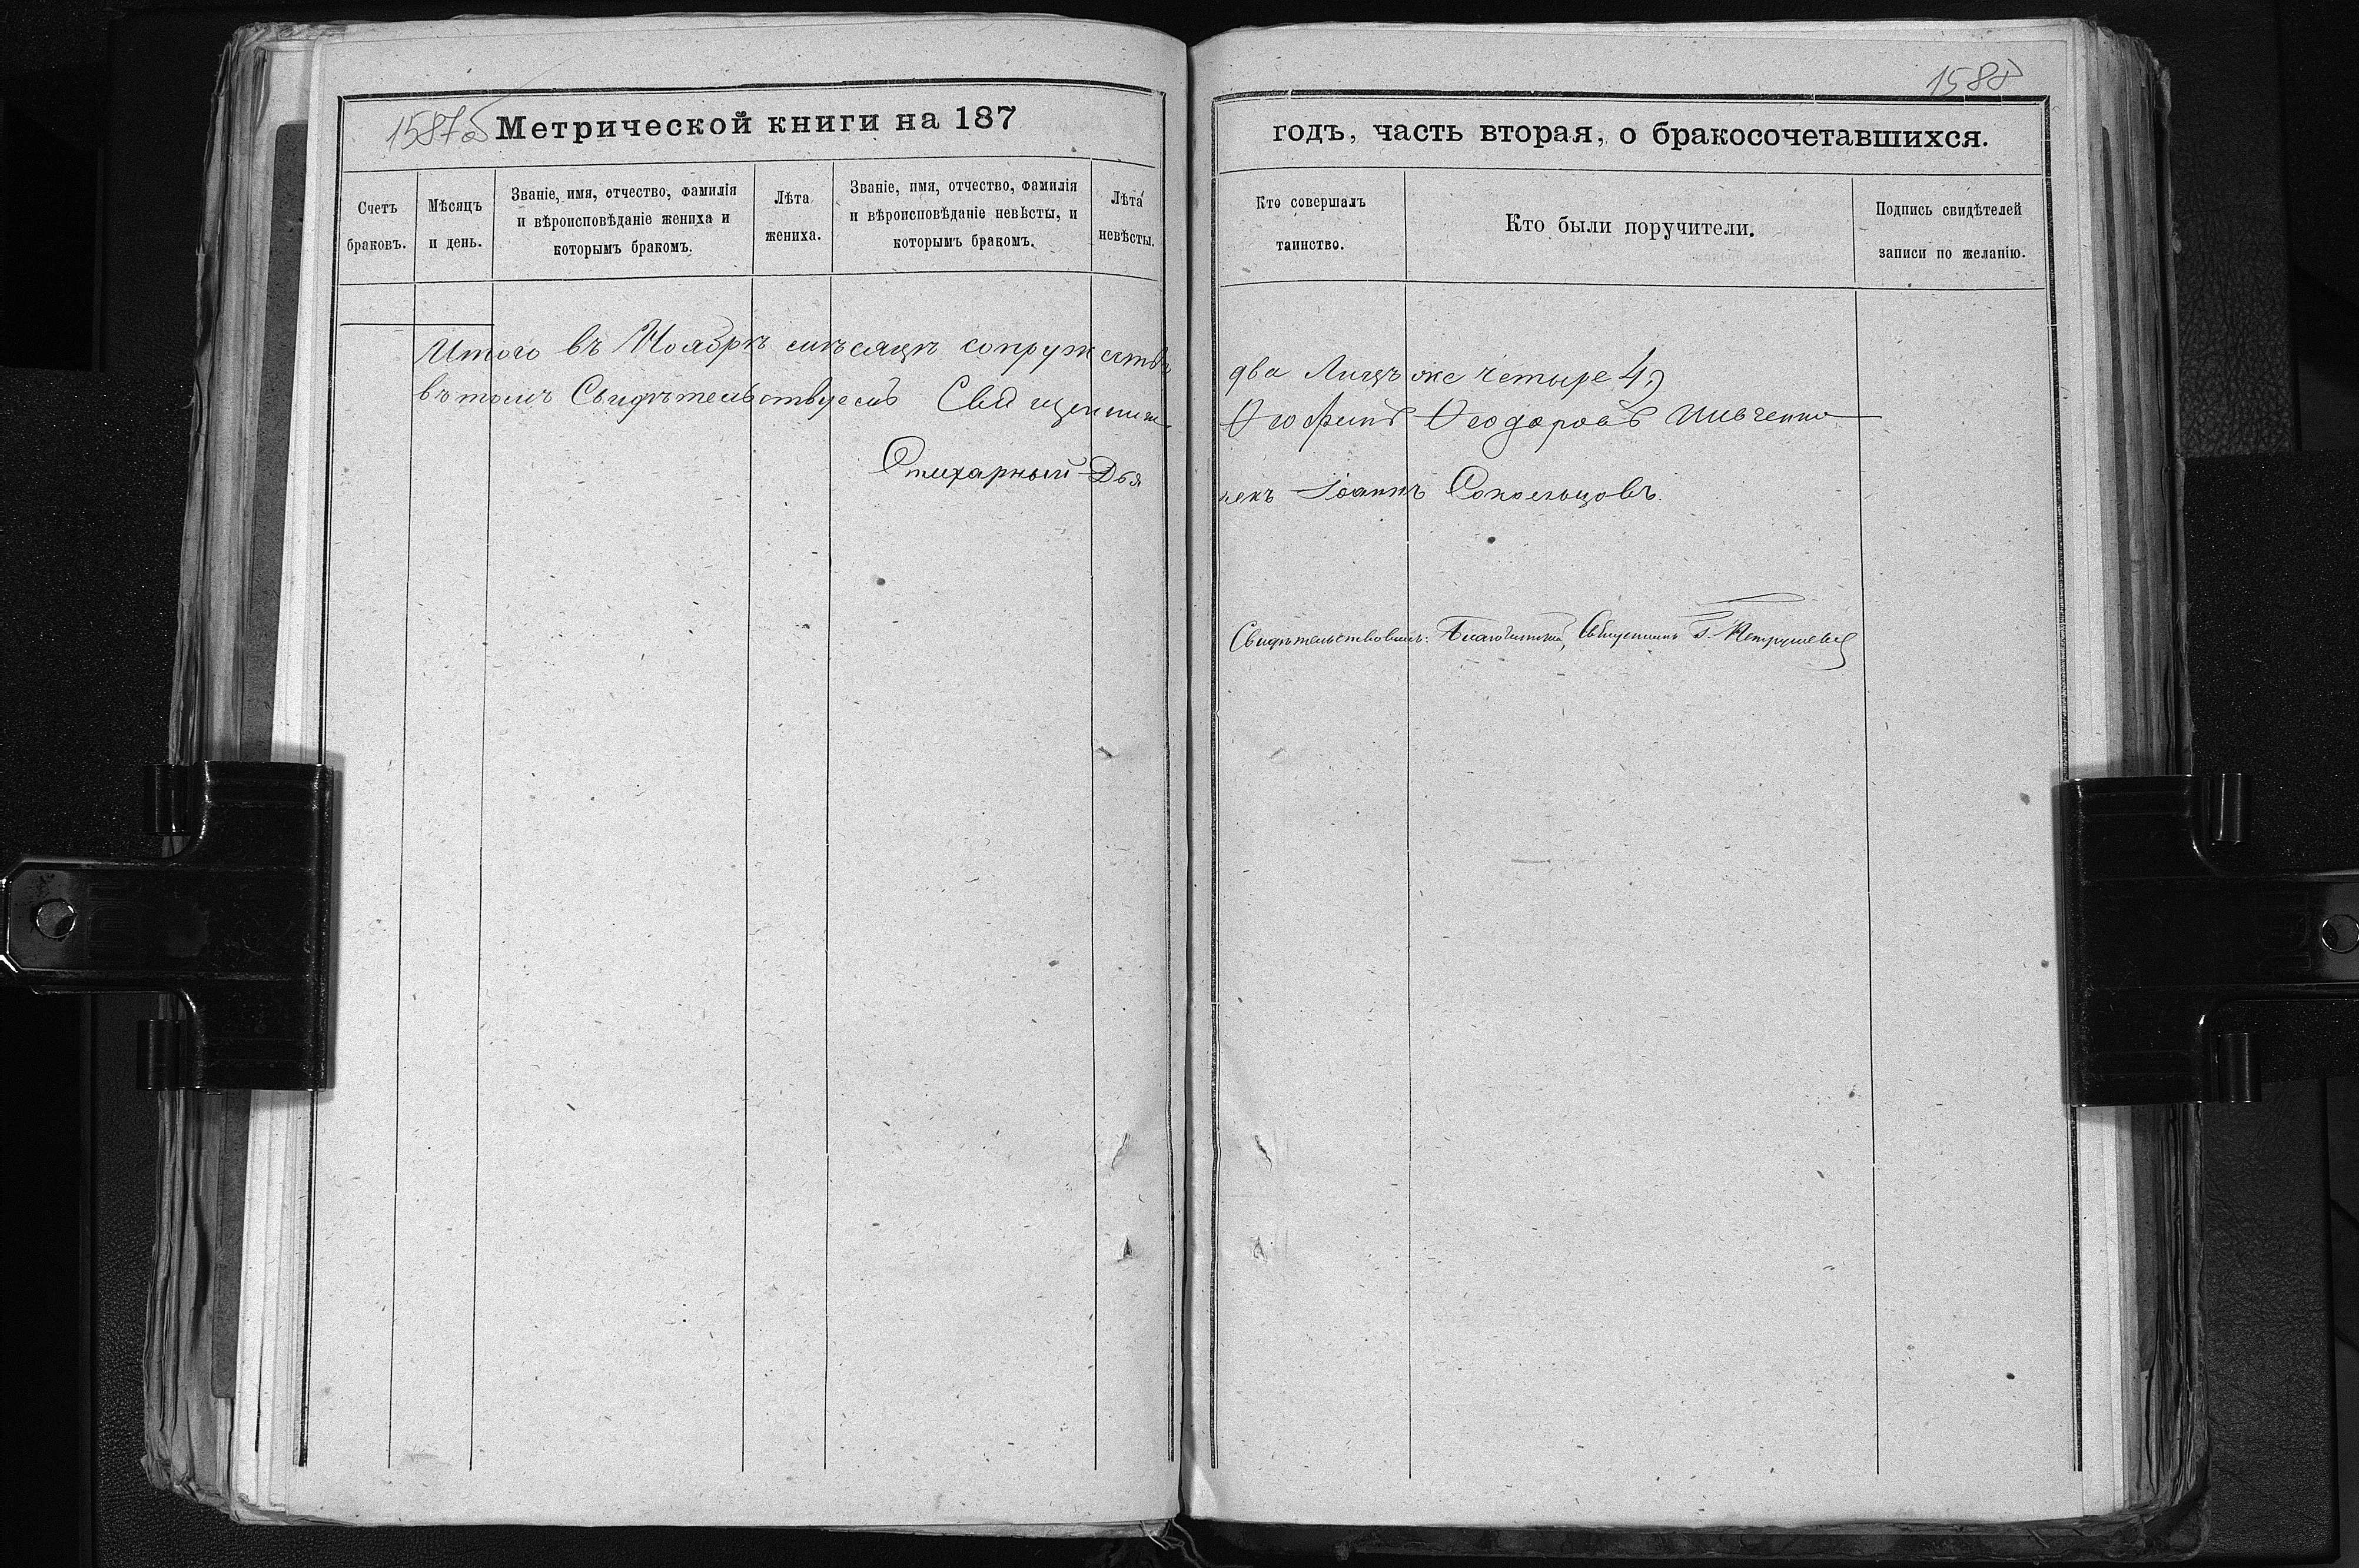 1587об
Метрической книги на 187
Счетъ браковъ.
Мѣсяцъ и день.
Званіе, имя, отчество, фамилія
и вѣроисповѣданіе жениха и
которымъ бракомъ.
Лѣта жениха.
Званіе, имя, отчество, фамилія
и вѣроисповѣданіе невѣсты, и
которымъ бракомъ.
Лѣта невѣсты.
Итого въ Ноябрѣ мѣсяцѣ сопружествъ
въ томъ Свидѣтельствуемъ Священникъ
Стихарный Дья
1588
годъ, часть вторая, о бракосочетавшихся.
Кто совершалъ
таинство.
Кто были поручители.
Подпись свидѣтелей
записи по желанію.
два Лицъ же четыре 4,
Ѳеофилъ Ѳеодоровъ
чекъ Іоаннъ Сокольцовъ.
Свидѣтельствовалъ: Благочинный, Священникъ